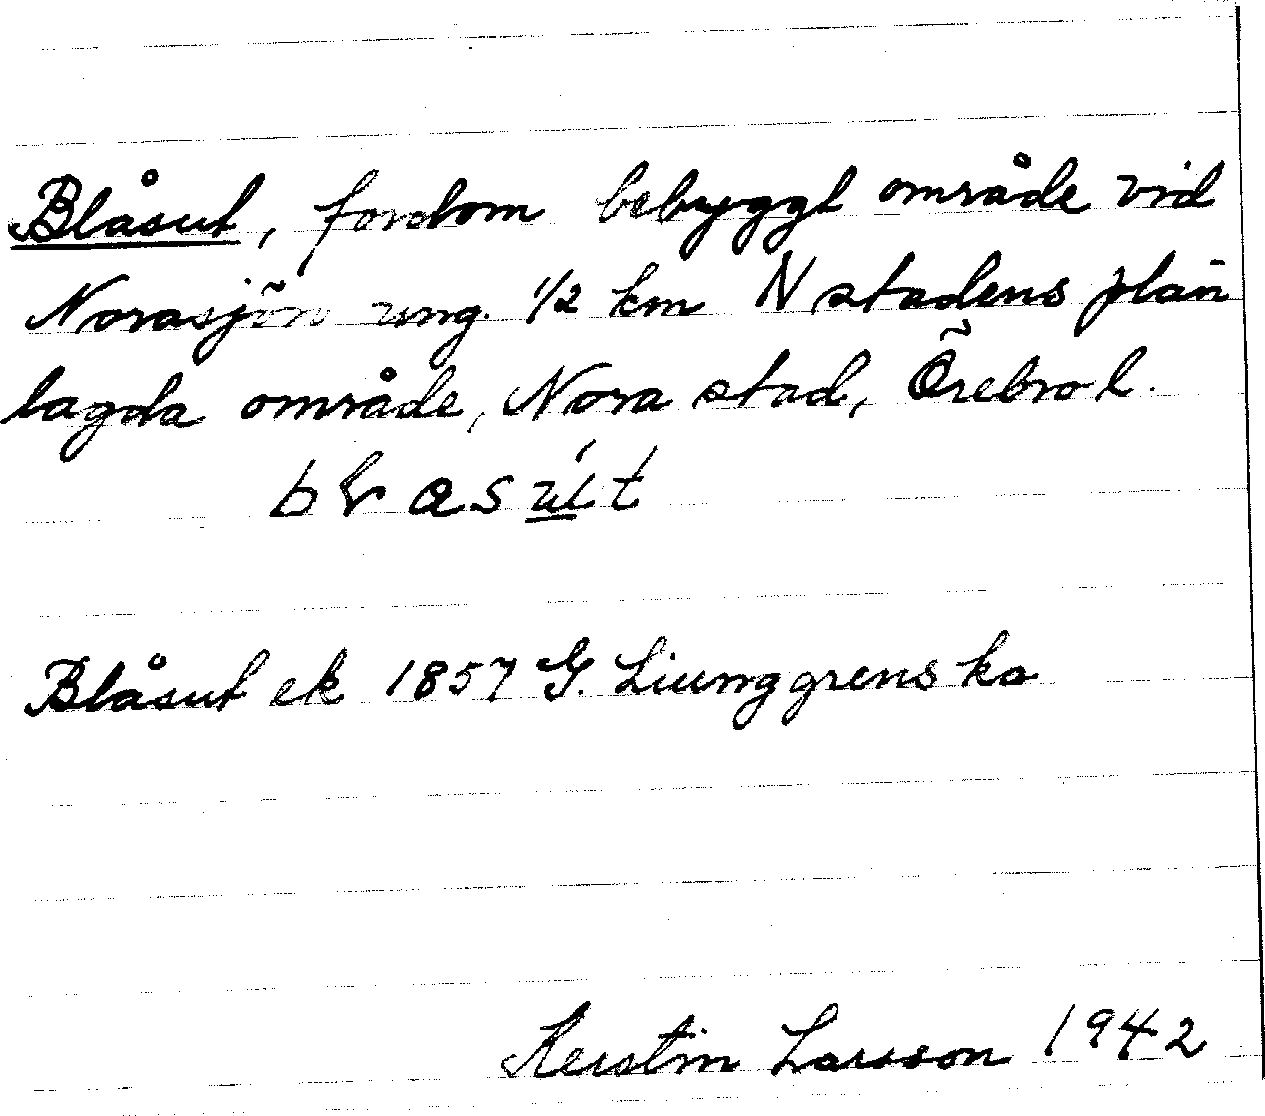 Blåsut, fordom bebyggt område vid
Norasjön ung. 1/2 km N stadens plan
lagda område, Nora stad, Örebro l.
Blåsut ek 1857 G. Liunggrens ka
Kerstin Larsson 1942